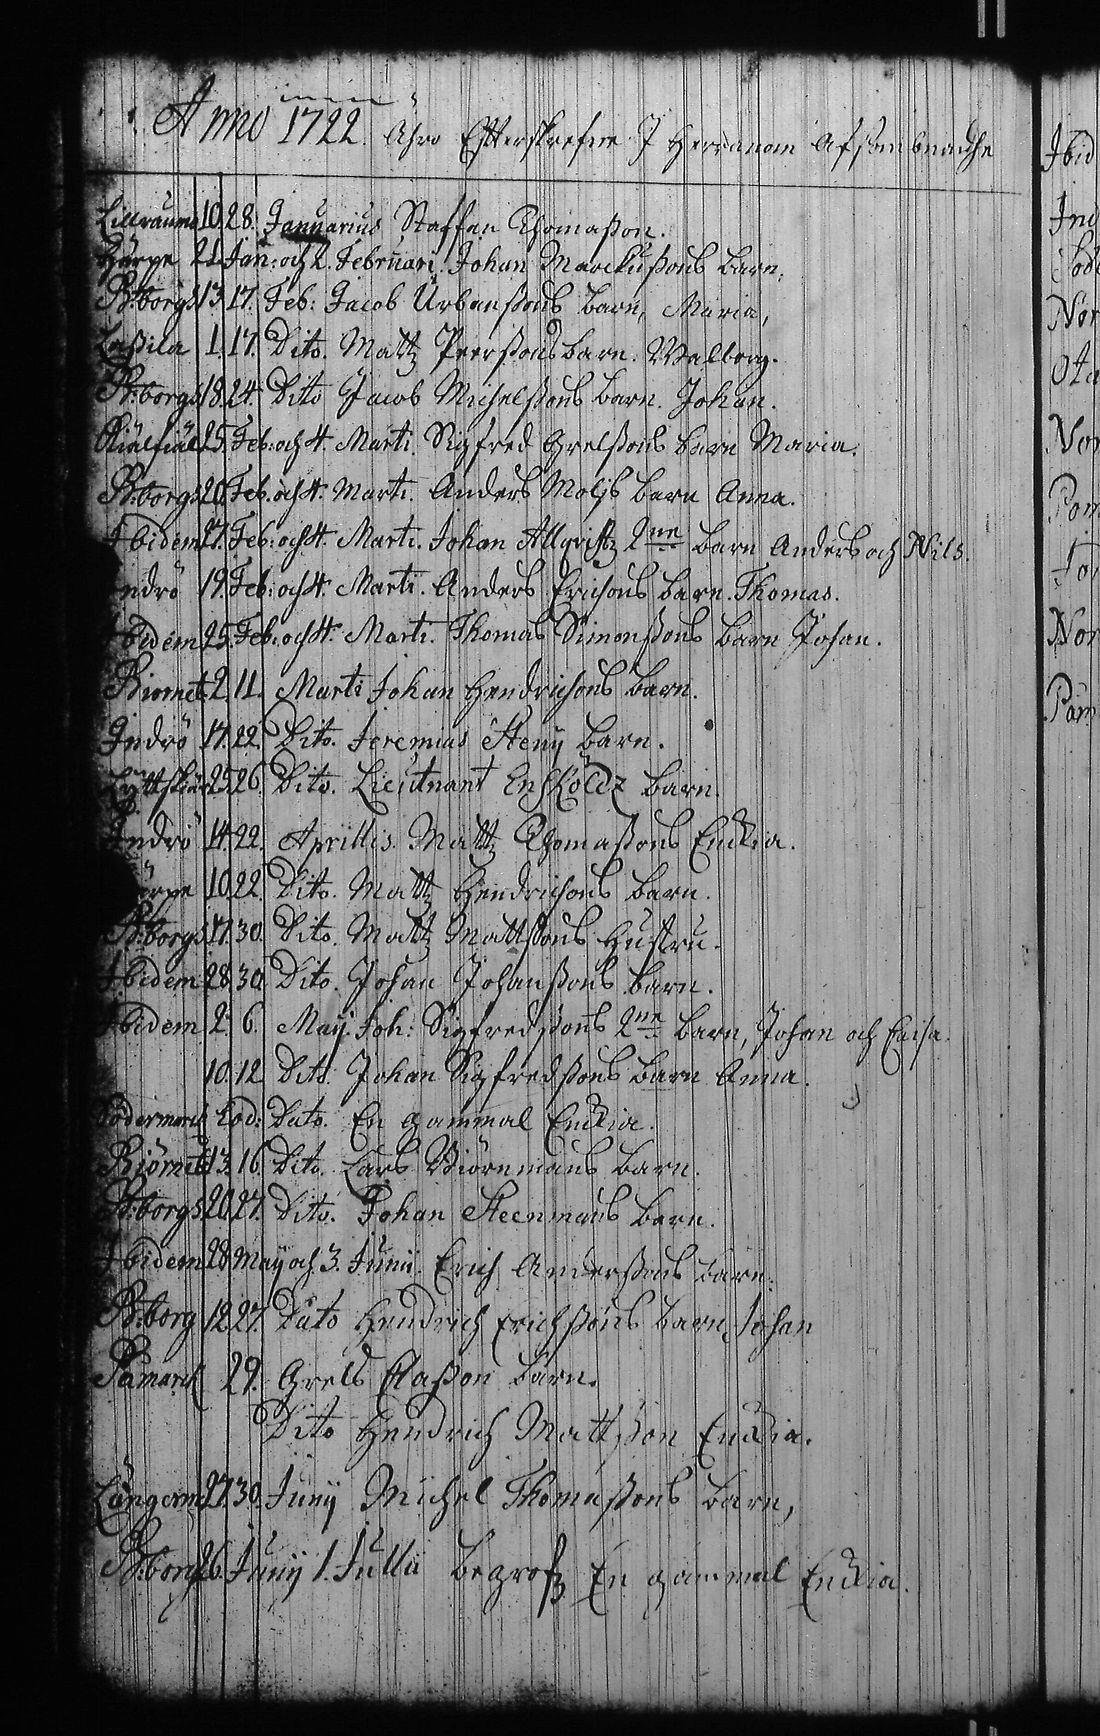 Anno 1722. Ähro Efterskrefne J Herranom Afsombnadhe
Lillraumo 10. 28. Januarius Staffan Thomaßon.
Härpe 21. Jan: och 2. Februari. Johan Marckußons barn.
B:borgs 13. 17. Feb: Jacob Urbanßons barn, Maria,
Laßila 1. 17. Dito. Matz Peerßons barn. Walborg.
B:borgs 18. 24. Dito Jacob Michelßons barn. Johan.
25. Feb: och 4. Marti. Sigfred Grelßons barn Maria.
B:borgs 20. Feb. och 4. Marti. Anders barn Anna.
Ibidem 27. Feb: och 4. Marti. Johan 2ne barn Anders och Nils.
ndrö 19. Feb: och 4. Marti. Anders Erichsons barn. Thomas.
Ibidem 25. Feb: och 4. Marti. Thomas Simonßons barn Johan.
Biornet 2. 11. Marti Johan Hendrichsons barn.
Indrö 17. 22. Dito. Jeremias Steny barn.
25. 26. Dito. Lieutnant barn.
Indrö 14. 22. Aprillis. Matz Thomaßons Enckia.
ärpe 10. 22. Dito. Matz Hendrichsons barn.
B:borgs 17. 30. Dito. Matz Mattßons Hustru.
Ibidem 28. 30. Dito. Johan Johanßons barn.
Ibidem 2. 6. Maij. Joh: Sigfredßons 2ne barn, Johan och Caisa.
10. 12. Dito. Johan Sigfredßons barn Anna.
Södermarck Eod: Dato. En gammal Enckia.
Biörnet 13. 16. Dito. Lars Biörnmans barn.
B:borgs 20. 27. Dito. Johan Steenmans barn.
Ibidem 28 Maij och 3. Junii. Erich Anderßons barn.
B:borg 12 27. Dato Hendrich Erichßons barn Johan
Påmarck 29. Grels Claßon barn.
Dito Hendrich Mattßon Enckia.
Långerm 27. 30. Junij Michel Thomaßons barn,
B:borgs 26. Junij 1. Julii begrofz En gammal Enckia.
Ibid
Ind
Söde
Nor
Ota
Nor
Pom
Nor
Påm